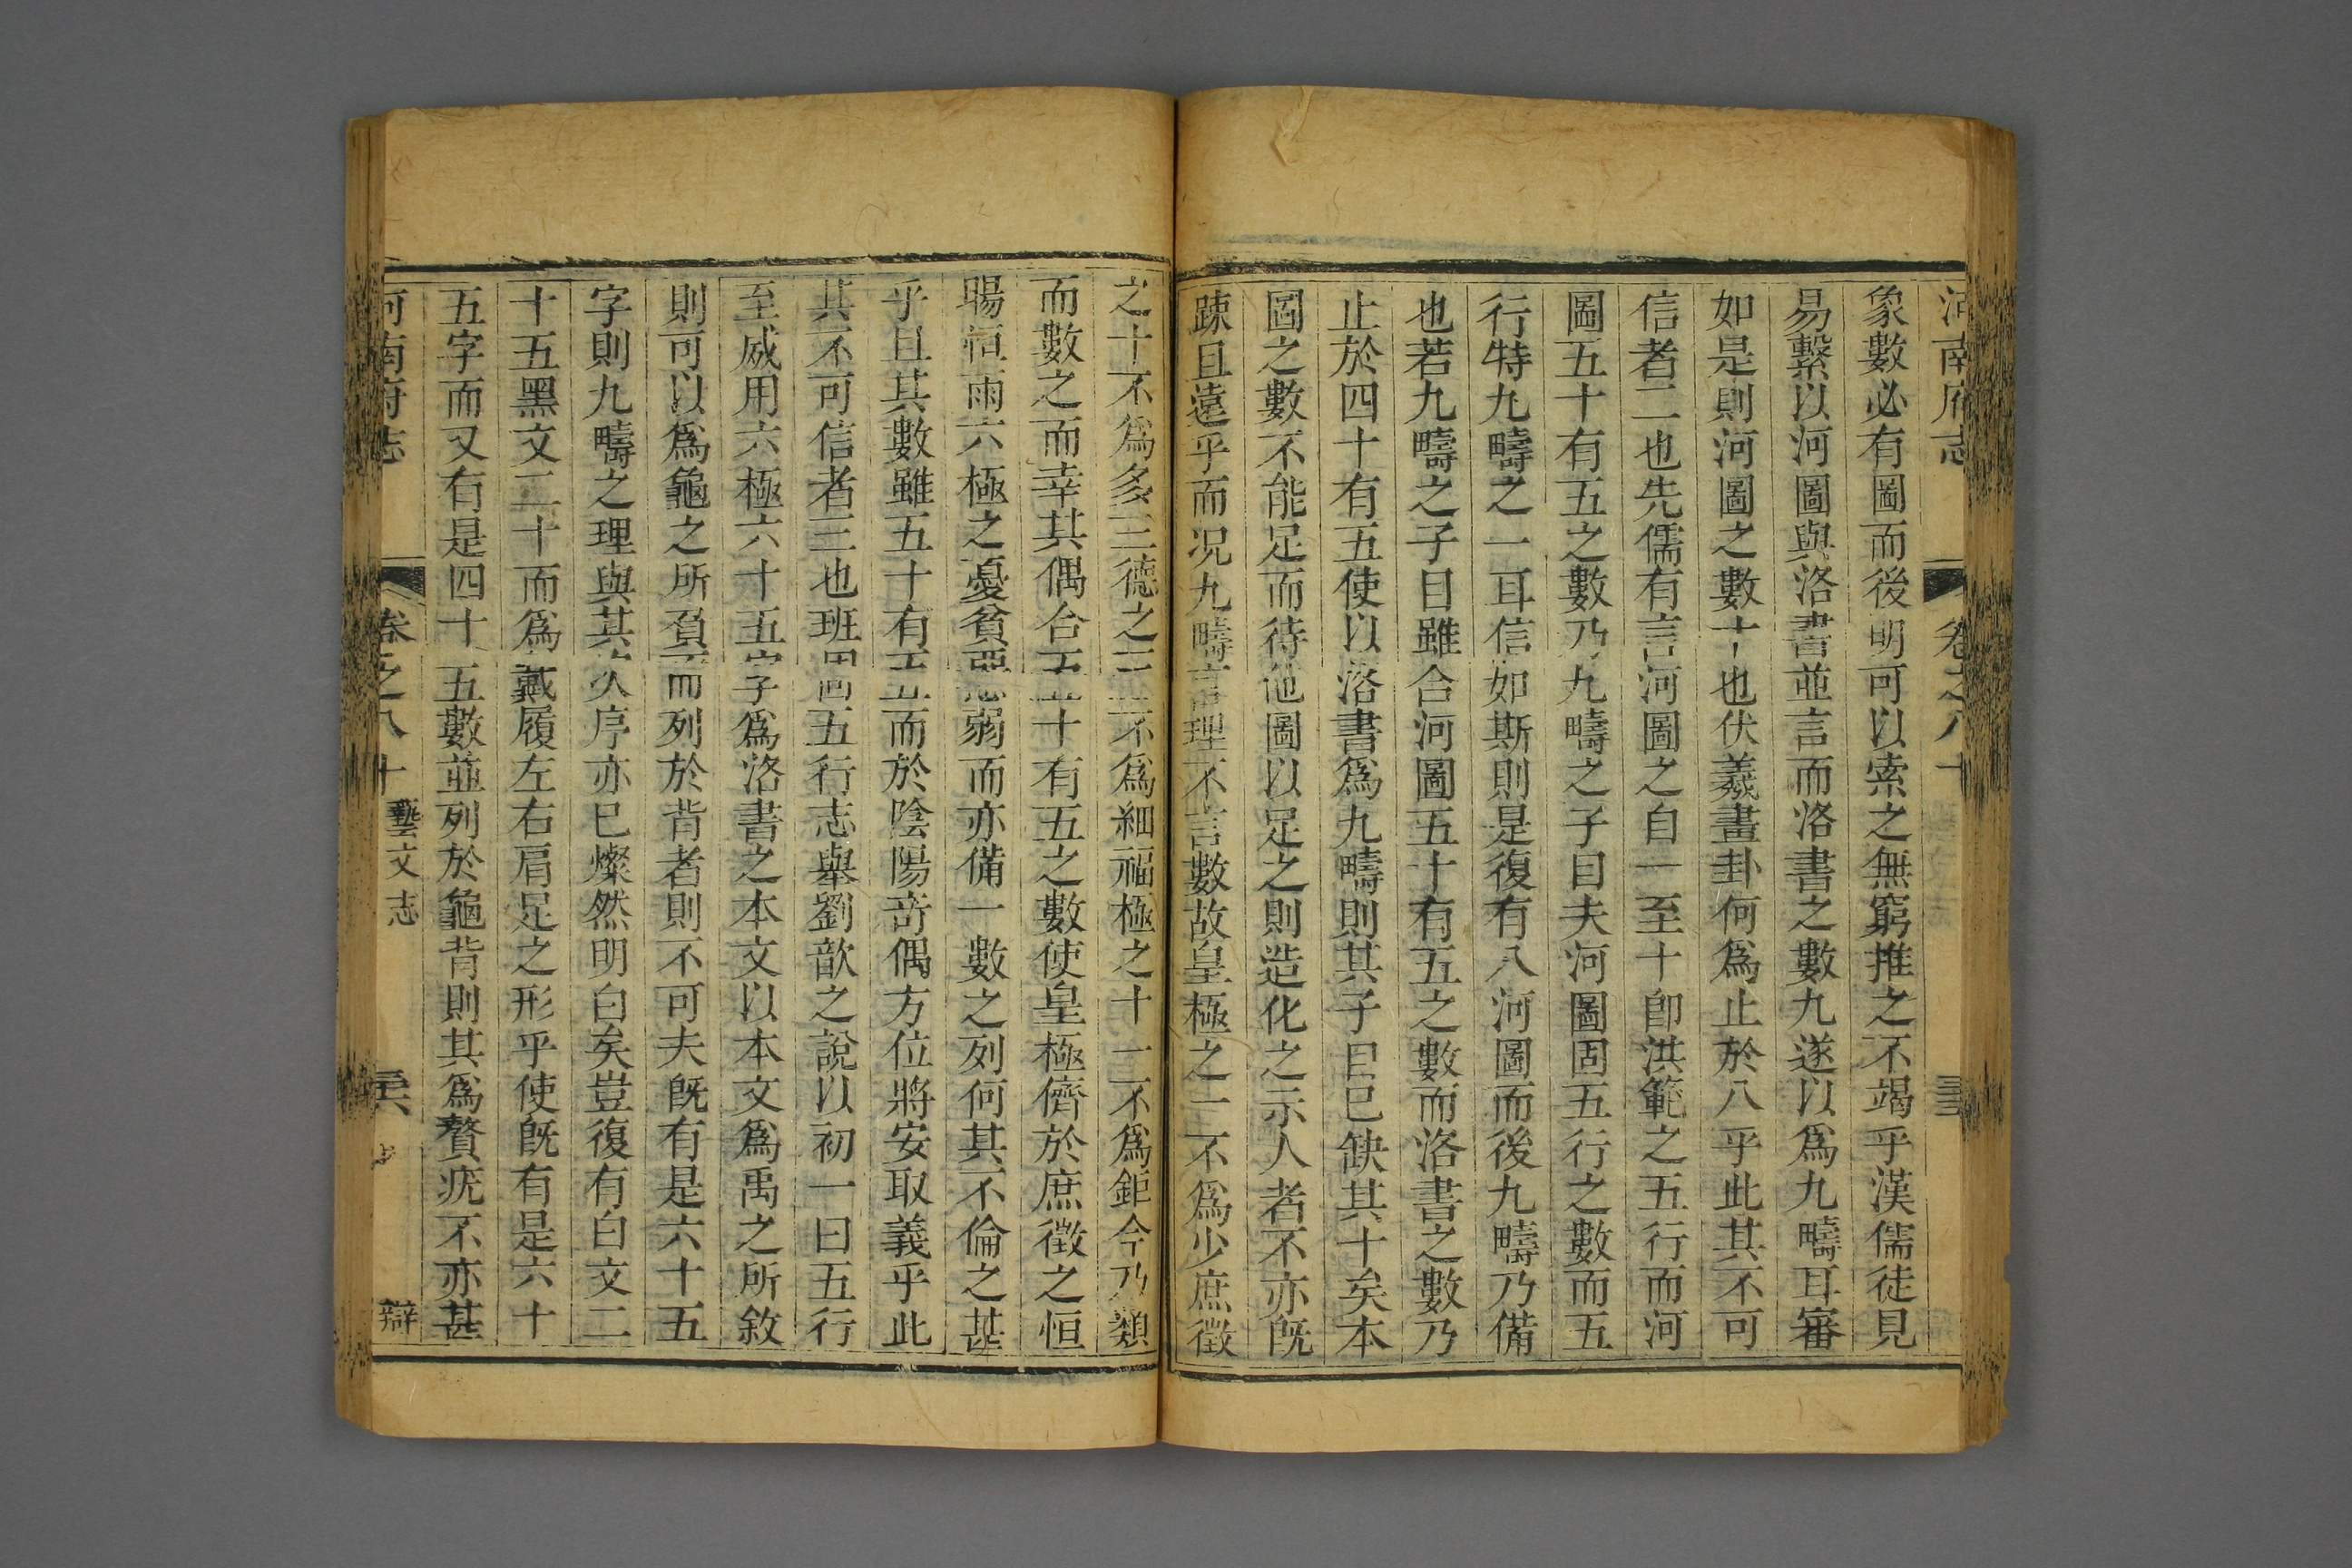 河南府志 卷之八十
象數必有圖而後明可以索之無窮推之不竭乎漢儒徒見
易繫以河圖與洛書並言而洛書之數九遂以爲九疇耳審
如是則河圖之數十也伏羲畫卦何爲止於八乎此其不可
信者二也先儒有言河圖之自一至十卽洪範之五行而河
圖五十有五之數乃九疇之子目夫河圖固五行之數而五
行特九疇之一耳信如斯則是復有八河圖而後九疇乃備
也若九疇之子目雖合河圖五十有五之數而洛書之數乃
止於四十有五使以洛書爲九疇則其子目已缺其十矣本
圖之數不能足而待他圖以足之則造化之示人者不亦旣
疎且遠乎而况九疇言理不言數故皇極之一不爲少庶徵
之十不爲多三德之三不爲細福極之十一不爲鉅今乃類
而數之而幸其偶合五十有五之數使皇極儕於庶徵之恒
暘恒雨六極之憂貧惡弱而亦備一數之列何其不倫之甚
乎且其數雖五十有五而於陰陽竒偶方位將安取義乎此
其不可信者三也班固五行志舉劉歆之說以初一曰五行
至威用六極六十五字爲洛書之本文以本文爲禹之所敘
則可以爲龜之所負而列於背者則不可夫旣有是六十五
字則九疇之理與其次序亦已燦然明白矣豈復有白文二
十五黑文二十而爲戴履左右肩足之形乎使旣有是六十
五字而又有是四十五數並列於龜背則其爲贅疣不亦甚
河南府志 卷之八十 藝文志 辯